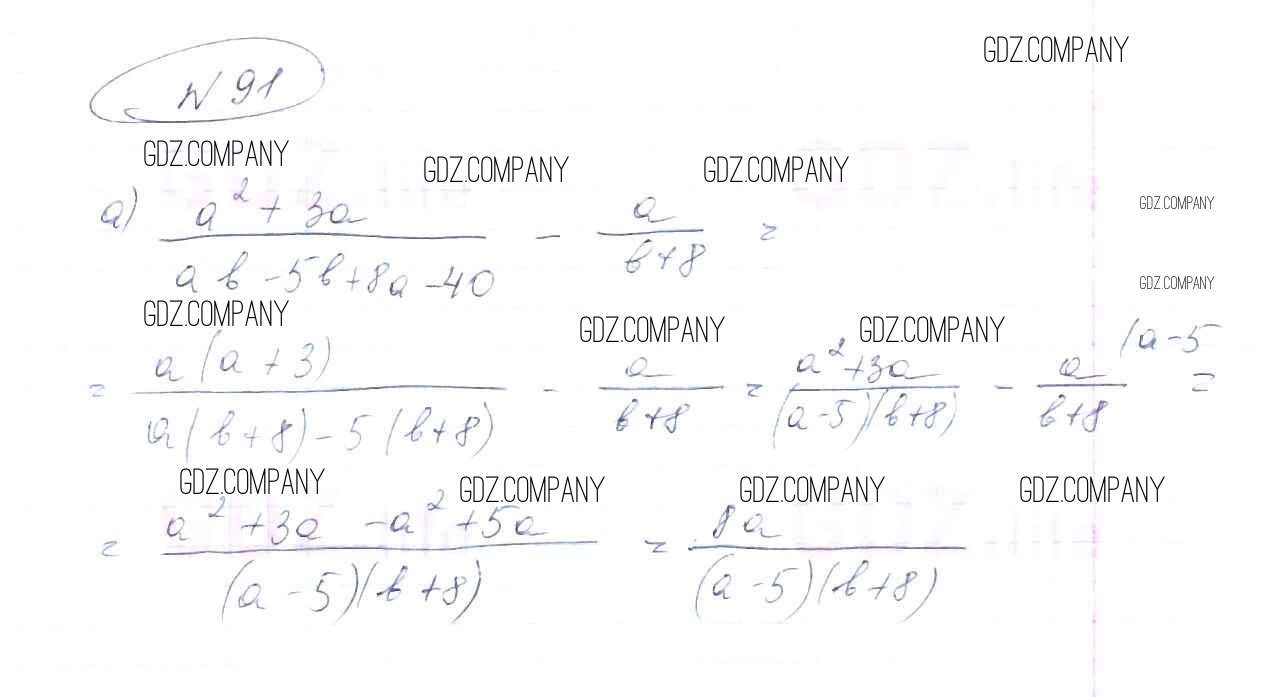 GDZ.COMPANY
N 91
GDZ.COMPANY GDZ.COMPANY GDZ.COMPANY
GDZ.COMPANY
а) (a² + 3a)/(ab - 5b + 8a - 40) - a/(b+8) =
GDZ.COMPANY
GDZ.COMPANY GDZ.COMPANY GDZ.COMPANY
= a(a + 3)/(a(b+8) - 5(b+8)) - a/(b+8) = (a² + 3a)/((a-5)(b+8)) - a/(b+8) (a-5 =
GDZ.COMPANY GDZ.COMPANY GDZ.COMPANY GDZ.COMPANY
= (a² + 3a - a² + 5a)/((a - 5)(b + 8)) = 8a/((a - 5)(b+8))